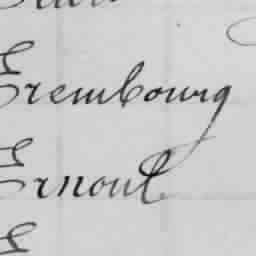 Erembourg
Ernoul